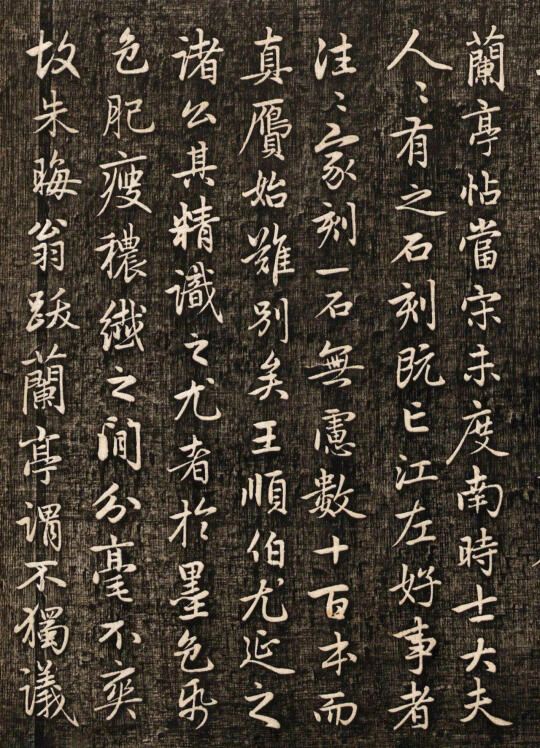 蘭亭帖當宋未度南時士大夫
人〻有之石刻既亡江左好事者
往〻家刻一石無慮數十百本而
真贋始難別矣王順伯尤延之
諸公其精識之尤者於墨色紙
色肥瘦穠纖之間分毫不爽
故朱晦翁跋蘭亭謂不獨議